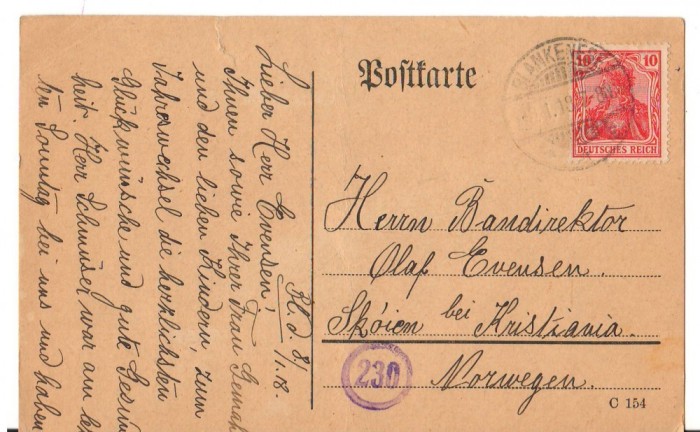 Postkarte
BLANKENESE
10 10
DEUTSCHES REICH
Herrn Bandirektor
Olaf Evensen.
Skóien bei Kristiania.
Norwegen.
230
C 154
Bl. d. 8/1. 18.
Lieber Herr Evensen!
Ihnen sowie Ihrer Frau Gemah
und den lieben Kindern, zum
Jahreswechsel die herzlichsten
Glückwünsche und gute Gesun
heit. Herr Schmüser war am
ten Sonntag bei uns und haben